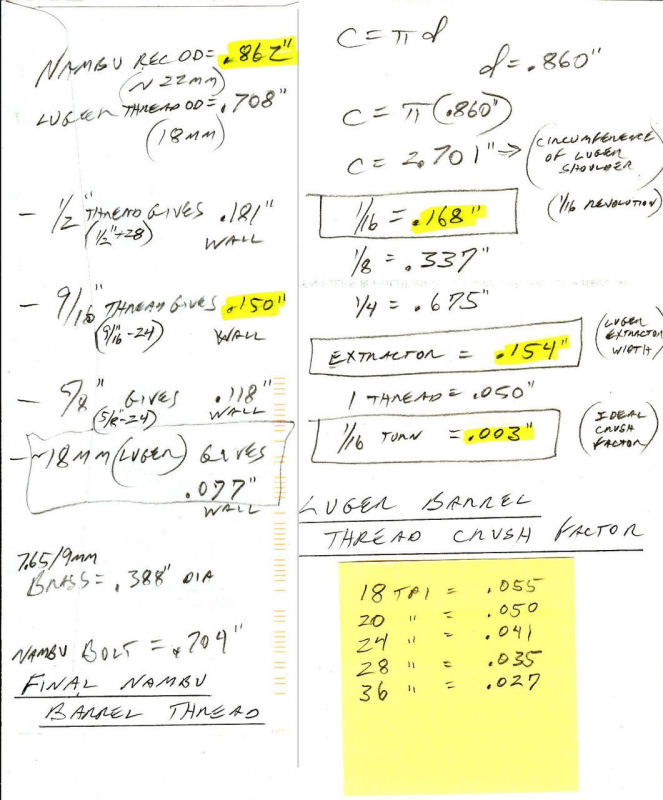 NAMBU REC OD= .862"
(~22MM)
LUGER THREAD OD= .708"
(18MM)
- 1/2" THREAD GIVES .181"
(1/2"-28) WALL
- 9/16" THREAD GIVES .150"
(9/16-24) WALL
- 5/8" GIVES .118"
(5/8"-24) WALL
- ~18MM (LUGER) GIVES
.077"
WALL
7.65/9mm
BRASS= .388" DIA
NAMBU BOLT = .704"
FINAL NAMBU
BARREL THREAD
C = π d
d = .860"
C = π (.860")
C = 2.701" ⇒ (CIRCUMFERENCE
OF LUGER
SHOULDER)
1/16 = .168" (1/16 REVOLUTION)
1/8 = .337"
1/4 = .675"
EXTRACTOR = .154" (LUGER
EXTRACTOR
WIDTH)
1 THREAD = .050"
1/16 TURN = .003" (IDEAL
CRUSH
FACTOR)
LUGER BARREL
THREAD CRUSH FACTOR
18 TPI = .055
20 " = .050
24 " = .041
28 " = .035
36 " = .027